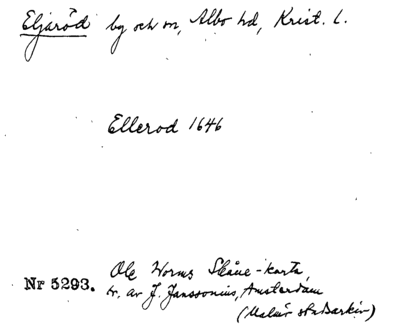 Eljaröd by och sn, Albo hd, Krist. l.
Ellerod 1646
Ole Worms Skåne-karta,
Nr 5293. tr. av J. Janssonius, Amsterdam
(Malmö stadsarkiv)